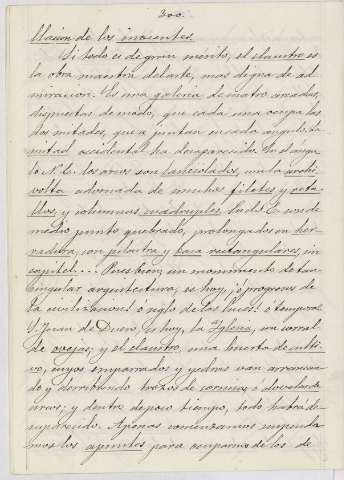 300.
llación de los inocentes.
Si todo es de gran mérito, el claustro es
la obra maestra del arte, mas digna de ad-
miracion. Es una galeria de cuatro arcadas,
dispuestas de modo, que cada una ocupa las
dos mitades, que se juntan en cada angulo. La
mitad accidental ha desaparecido. En el angu-
lo N. E. los arcos son lanceolados, con la archi-
volta adornada de muchos filetes y
y columnas cuadruples. Las del E. son de
medio punto quebrado, prolongados en her-
radura, con pilastra y basa rectangulares, sin
capitel.... Pues bien, un monumento de tan
singular arquitectura, es hoy, ¡ó progresos de
la civilizacion! ó siglo de las luces! ó tempora!
S. Juan de Duero, es hoy, la Iglesia, un corral
de ovejas; y el claustro, una huerta de culti-
vo, cuyos emparrados y yedras van arrancan-
do y derribando trozos de cornisa, ó dovelas de
arcos; y dentro de poco tiempo, todo habrá de-
saparecido. Apenas comenzamos
mos los apuntes para ocuparnos de los de